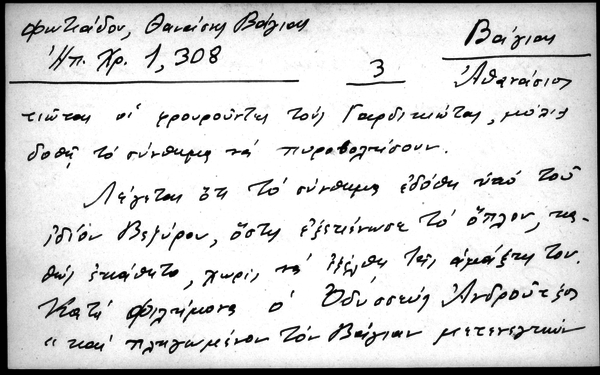 Φωτιάδου, Θανάσης Βάγιας
Ἠπ. Χρ. 1, 308
Βάγιας
Ἀθανάσιος
3
τιώται οἱ φρουροῦντες τούς Γαρδικιώτας, μόλις
δοθῇ τό σύνθημα νά πυροβολήσουν.
Λέγεται ὅτι τό σύνθημα ἐδόθη ὑπό τοῦ
ἰδίου Βεζύρου, ὅστις ἐξεκένωσε τό ὅπλον, κα-
θώς ἐκάθητο, χωρίς νά ἐξέλθῃ τῆς ἁμάξης του.
Κατά Φιλήμονα ὁ Ὀδυσσεύς Ἀνδροῦτσος
"καί πληγωμένον τόν Βάγιαν μετενεγκών